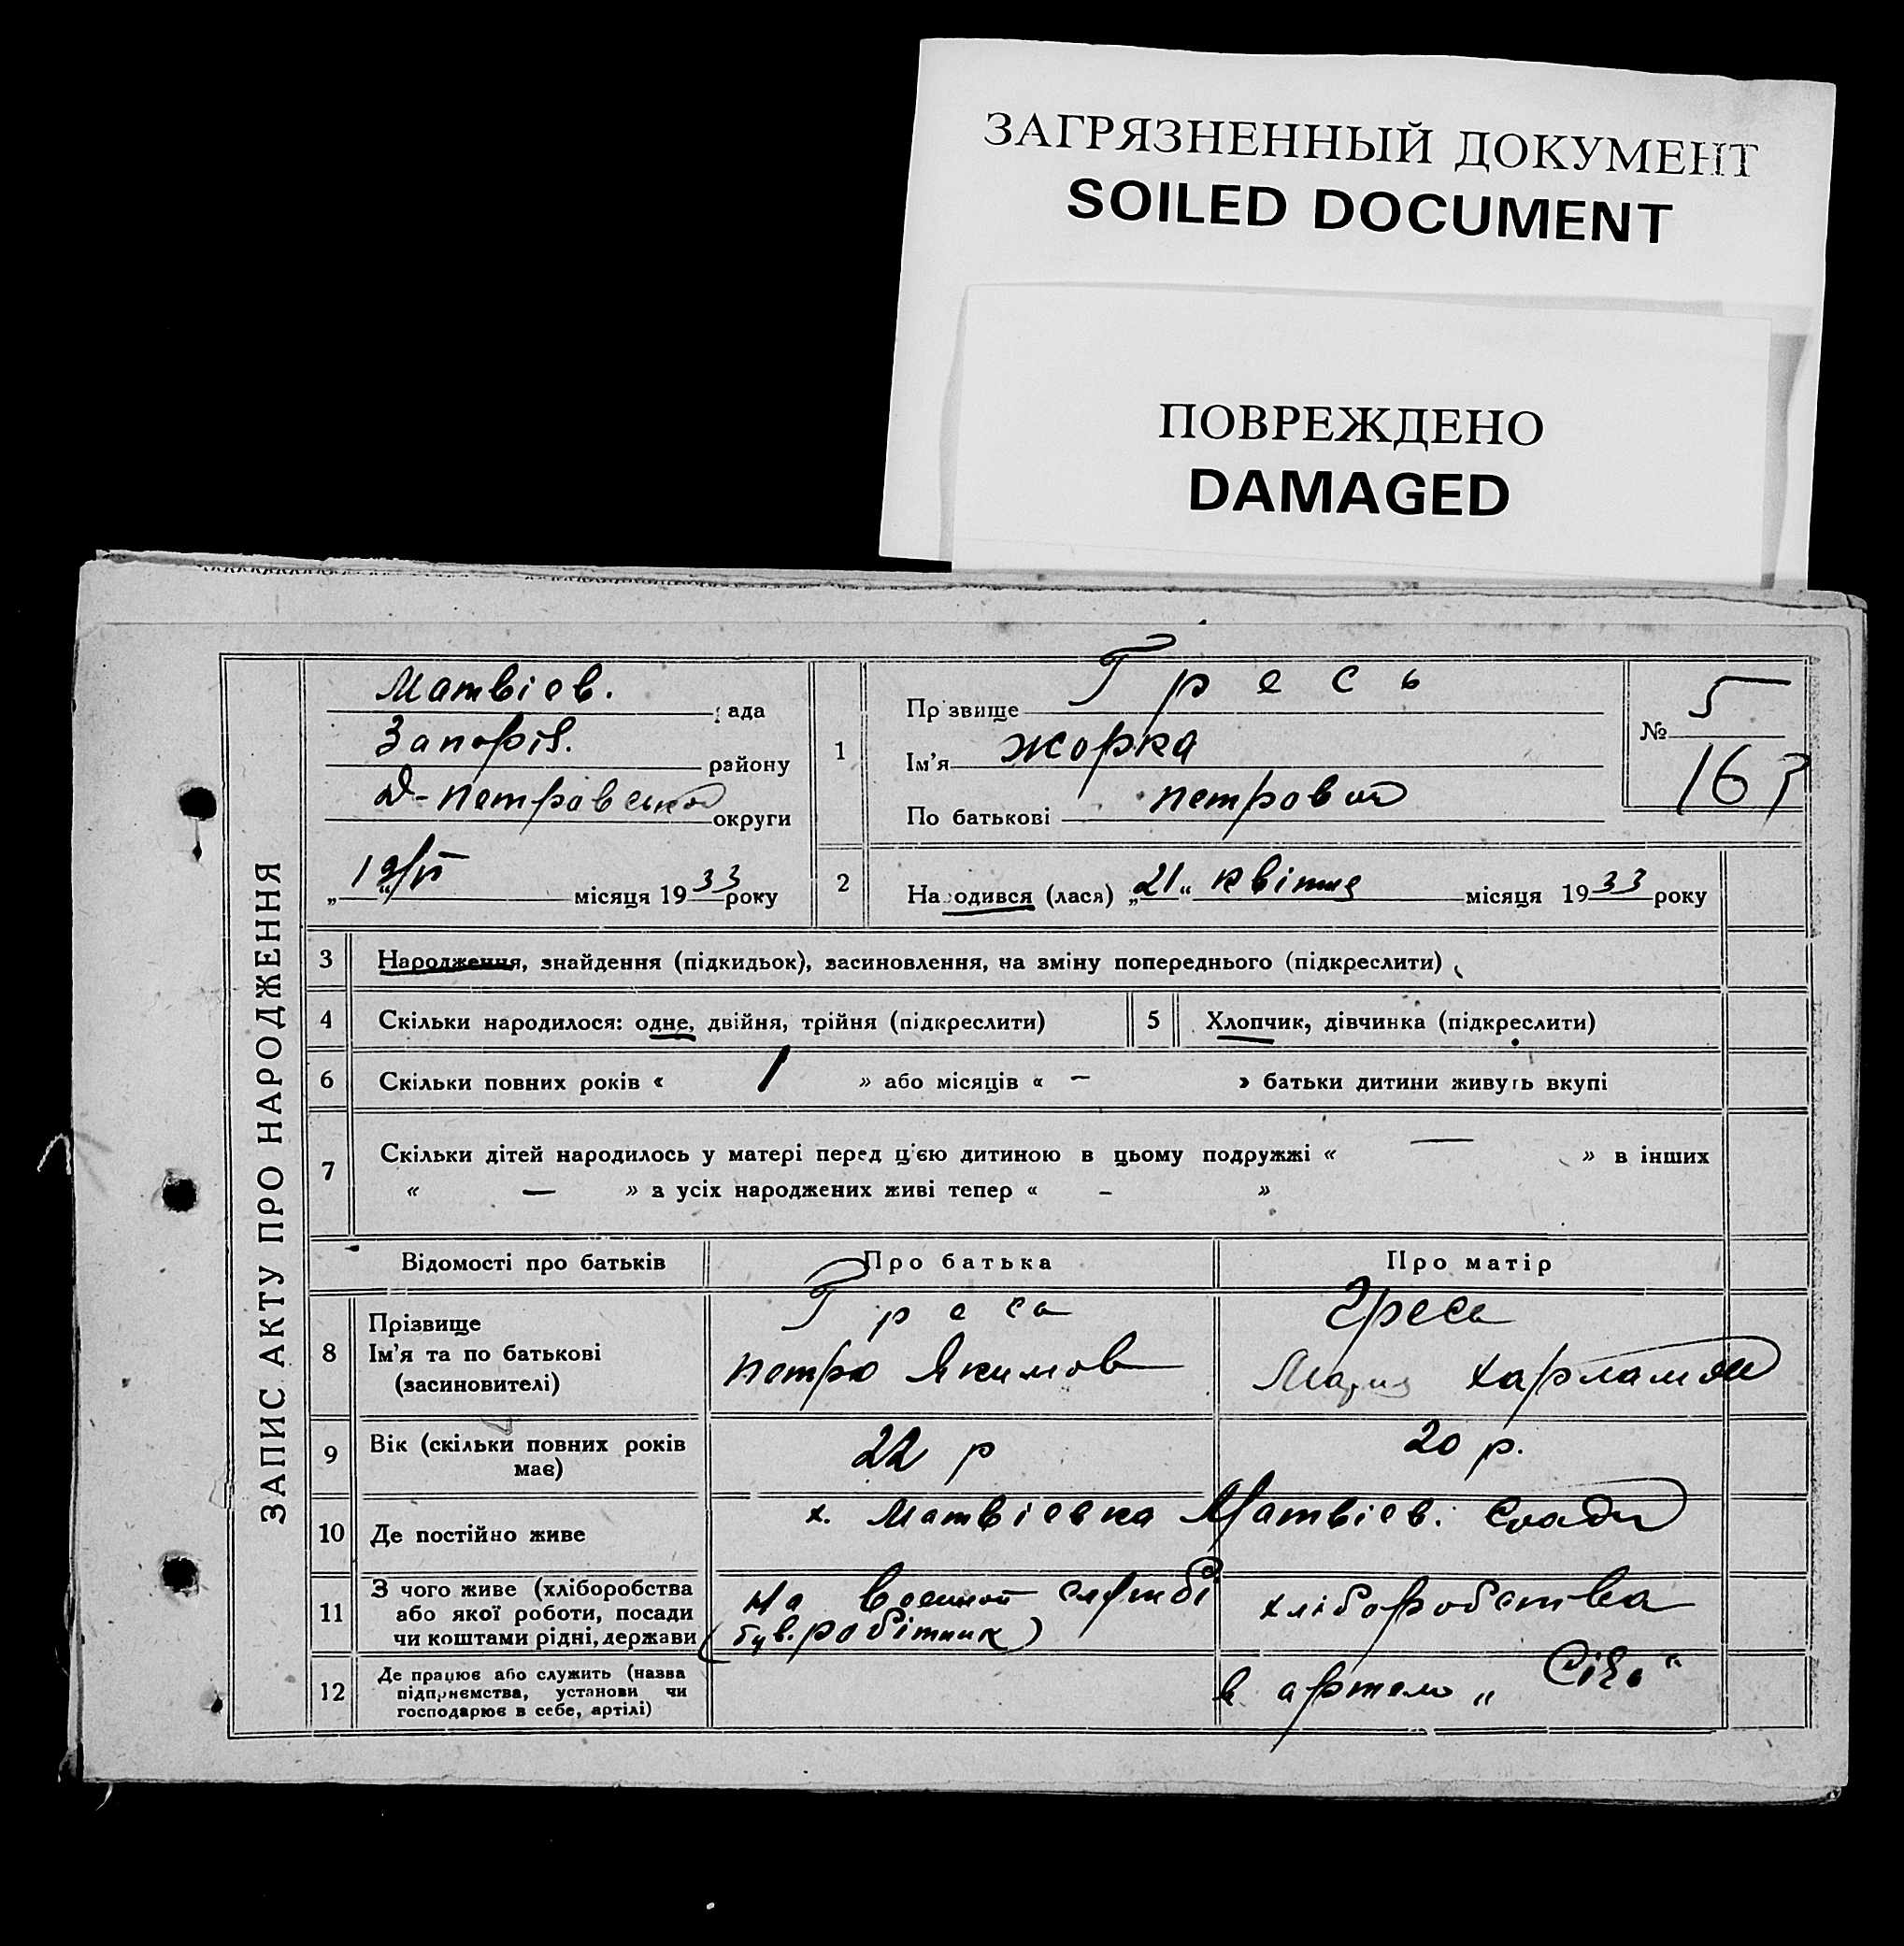 ЗАГРЯЗНЕННЫЙ ДОКУМЕНТ
SOILED DOCUMENT
ПОВРЕЖДЕНО
DAMAGED
ЗАПИС АКТУ ПРО НАРОДЖЕННЯ
Матвієв. рада
Запоріз. району
Д-петровської округи
місяця 1933 року
1
Прізвище Гресь
Ім'я Жорка
По батькові петрович
№ 5
16
2 Народився (лася) „21“ квітня місяця 1933 року
3 Народження, знайдення (підкидьок), засиновлення, на зміну попереднього (підкреслити)
4 Скільки народилося: одне, двійня, трійня (підкреслити)
5 Хлопчик, дівчинка (підкреслити)
6 Скільки повних років « 1 » або місяців « — » батьки дитини живуть вкупі
7 Скільки дітей народилось у матері перед ц'єю дитиною в цьому подружжі « — » в інших
« — » а усіх народжених живі тепер « – »
Відомості про батьків Про батька Про матір
8 Прізвище Гресь Гресь
Ім'я та по батькові петро Якимов Мария Харламов
(засиновителі)
9 Вік (скільки повних років має) 22 р 20 р.
10 Де постійно живе х. Матвієвка Матвієв. с/ради
11 З чого живе (хліборобства або якої роботи, посади чи коштами рідні, держави на военной службі (був. робітник) хліборобства
12 Де працює або служить (назва підприємства, установи чи господарює в себе, артілі) в артелі „